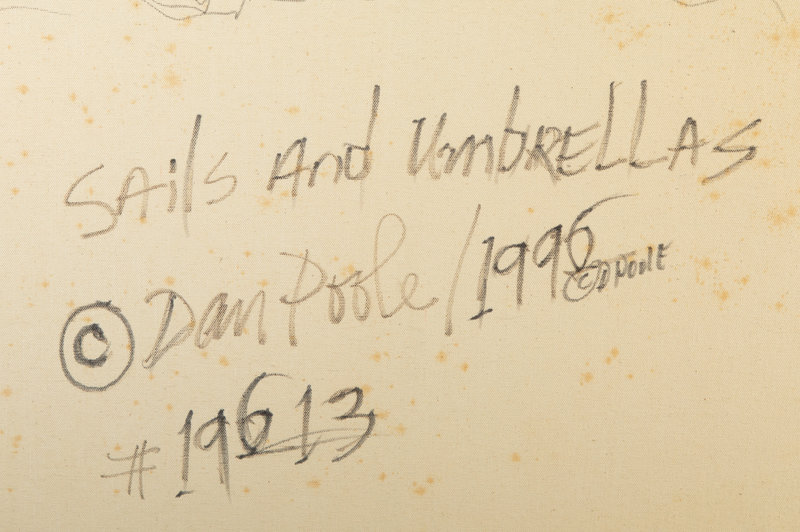 SAils And UmbRELLAS
© Dan Poole / 1996
#19613